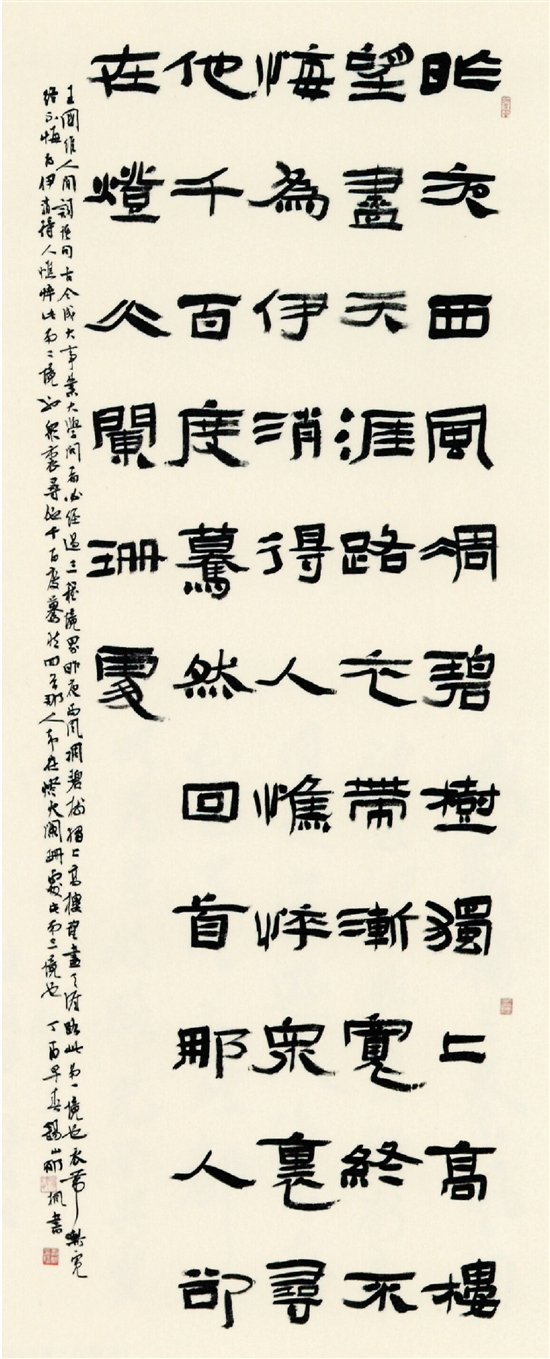 昨夜西風凋碧樹獨上高樓
望盡天涯路衣帶漸寬終不
悔為伊消得人憔悴眾裏尋
他千百度驀然回首那人卻
在燈火闌珊處
王國維人間詞話句古今成大事業大學問者必經過三種境界昨夜西風凋碧樹獨上高樓望盡天涯路此第一境也衣帶漸寬
終不悔為伊消得人憔悴此第二境也眾裏尋他千百度驀然回首那人卻在燈火闌珊處此第三境也 丁酉早春錫山 楓書